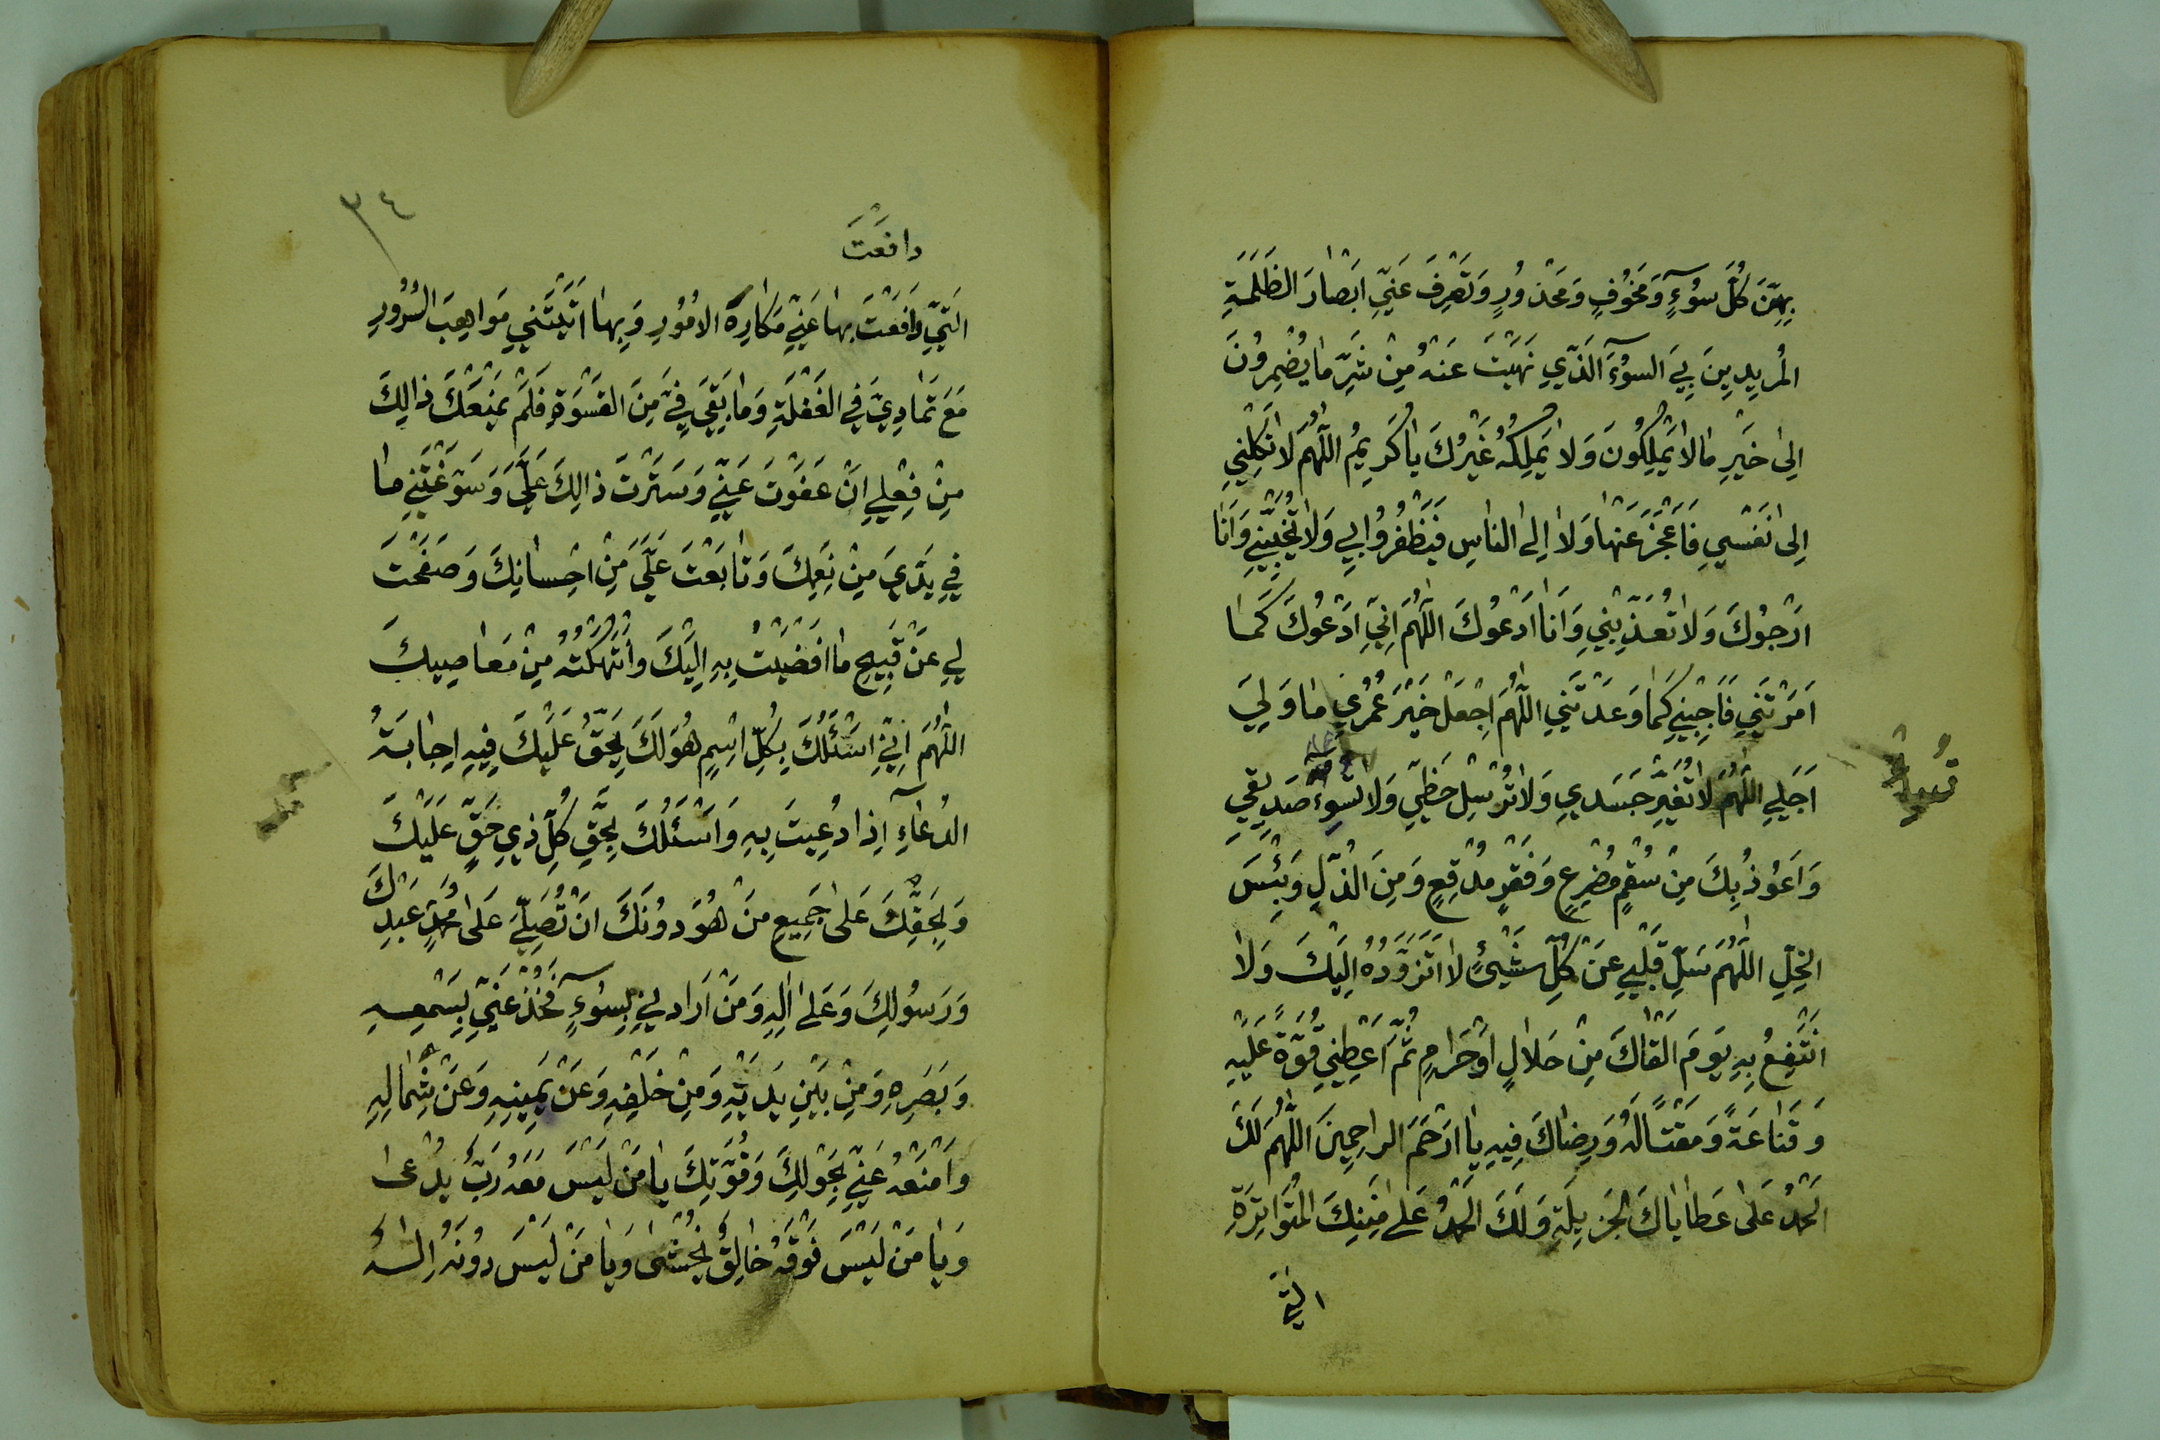 بِهِنَّ كُلَّ سُوْءٍ وَمَخُوْفٍ وَمَحْذُورٍ وَتَصْرِفَ عَنّي اَبْصٰارَ الظَلَمَةِ
المُرِيدِينَ بِيَ السوُۤءَ الَّذي نَهَيْتَ عَنْهُ مِنْ شَرِّ مٰا يُضْمِرُونَ
اِلىٰ خَيْرِ مٰا لا يَمْلِكُونَ وَلاٰ يَمْلِكُهُ غَيْرُكَ يٰا كَرِيمُ اللّهُمَّ لاٰ تَكِلْني
اِلىٰ نَفْسي فَاَعْجَزَ عَنْهٰا وَلاٰ اِلى الناسِ فَيَظْفُرُوا بي وَلاٰ تُخَيِّبْني وَاَنَا
اَرْجُوكَ وَلاٰ تُعَذِّبْني وَاَنَا اَدْعُوكَ اللّهُمَّ اِنّي اَدْعُوكَ كَمٰا
اَمَرْتَني فَاَجِبْني كَمٰا وَعَدْتَني اللّهُمَّ اجْعَلْ خَيْرَ عُمْري مٰا وَلِيَ
اَجَلي اللّهُمَّ لاٰ تُغَيِّرْ جَسَدي وَلاٰ تُرْسِلْ حَظّي وَلاٰ تَسُوءْ صَدِيقي
وَاَعُوذُ بِكَ مِنْ سُقْمٍ مُضْرِعٍ وَفَقْرٍ مُدْقِعٍ وَمِنَ الذُلِّ وَبِئْسَ
الخِلِّ اللّهُمَّ سَلِّ قَلْبي عَنْ كُلِّ شَيْئٍ لاٰ اَتَزَوَّدُهُ اِلَيْكَ وَلاٰ
اَنْتَفِعُ بِهِ يَوْمَ اَلْقٰاكَ مِنْ حَلاٰلٍ اَوْ حَرٰامٍ ثُمَّ اَعْطِني قُوَّةً عَلَيْهِ
وَقَنٰاعَةً وَمَقْتًا لَهُ وَرِضٰاكَ فِيهِ يٰا اَرْحَمَ الراحِمِينَ اللّهُمَّ لَكَ
الحَمْدُ عَلىٰ عَطٰايٰاكَ الجَزِيلَةِ وَلَكَ الحَمْدُ عَلىٰ مِنَنِكَ المُتَوٰاتِرَةِ
التي
٣٤
دافَعْتَ
الَتّي دٰافَعْتَ بِهٰا عَنّي مَكٰارِهَ الاُمُورِ وَبِهٰا اٰتَيْتَني مَوٰاهِبَ السُرُورِ
مَعَ تَمٰادِيَّ في الغَفْلَةِ وَمٰا بَقِيَ فيَّ مِنَ القَسْوَةِ فَلَمْ يَمْنَعْكَ ذٰلِكَ
مِنْ فِعْلي اَنْ عَفَوْتَ عَنّي وَسَتَرْتَ ذٰلِكَ عَلَيَّ وَسَوَّغْتَني مٰا
في يَدَيَّ مِنْ نِعَمِكَ وَتٰابَعْتَ عَلَيَّ مِنْ اِحْسٰانِكَ وَصَفَحْتَ
لي عَنْ قَبِيحِ مٰا اَفْضَيْتُ بِهِ اِلَيْكَ وَانْتَهَكْتُهُ مِنْ مَعٰاصِيكَ
اللّهُمَّ اِنّي اَسْئَلُكَ بِكُلِّ اسْمٍ هُوَ لَكَ يَحِقُّ عَلَيْكَ فِيهِ اِجٰابَةُ
الدُعٰاۤءِ اِذٰا دُعِيتَ بِهِ وَاَسْئَلُكَ بِحَقِّ كُلِّ ذي حَقٍّ عَلَيْكَ
وَبِحَقِّكَ عَلىٰ جَمِيعِ مَنْ هُوَ دُونَكَ اَنْ تُصَلِّيَ عَلىٰ مُحَمَّدٍ عَبْدِكَ
وَرَسُولِكَ وَعَلىٰ اٰلِهِ وَمَنْ اَرٰادَني بِسُوۤءٍ فَخُذْ عَنّي بِسَمْعِهِ
وَبَصَرِهِ وَمِنْ بَيْنِ يَدَيْهِ وَمِنْ خَلْفِهِ وَعَنْ يَمِينِهِ وَعَنْ شِمٰالِهِ
وَامْنَعْهُ عَنّي بِحَوْلِكَ وَقُوَّتِكَ يٰا مَنْ لَيْسَ مَعَهُ رَبٌّ يُدْعىٰ
وَيٰا مَنْ لَيْسَ فَوْقَهُ خٰالِقٌ يُخْشىٰ وَيٰا مَنْ لَيْسَ دُونَهُ اِلٰهٌ